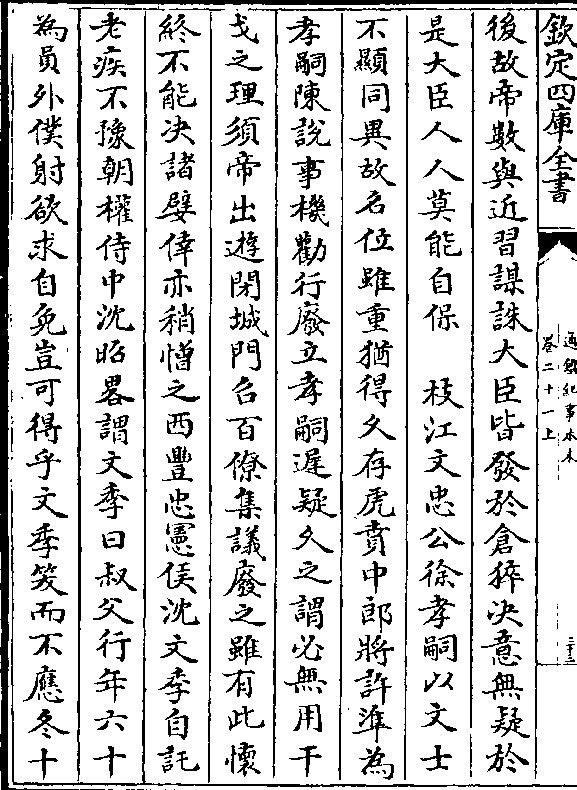 欽定四庫全書
通鑑紀事本末
卷二十一上
二十三
後故帝數與近習謀誅大臣皆發於倉猝决意無疑於
是大臣人人莫能自保　枝江文忠公徐孝嗣以文士
不顯同異故名位雖重猶得久存虎賁中郎將許準為
孝嗣陳說事機勸行廢立孝嗣遲疑久之謂必無用干
戈之理須帝出遊閉城門召百僚集議廢之雖有此懷
終不能决諸嬖倖亦稍憎之西豐忠憲侯沈文季自託
老疾不豫朝權侍中沈昭畧謂文季曰叔父行年六十
為員外僕射欲求自免豈可得乎文季笑而不應冬十